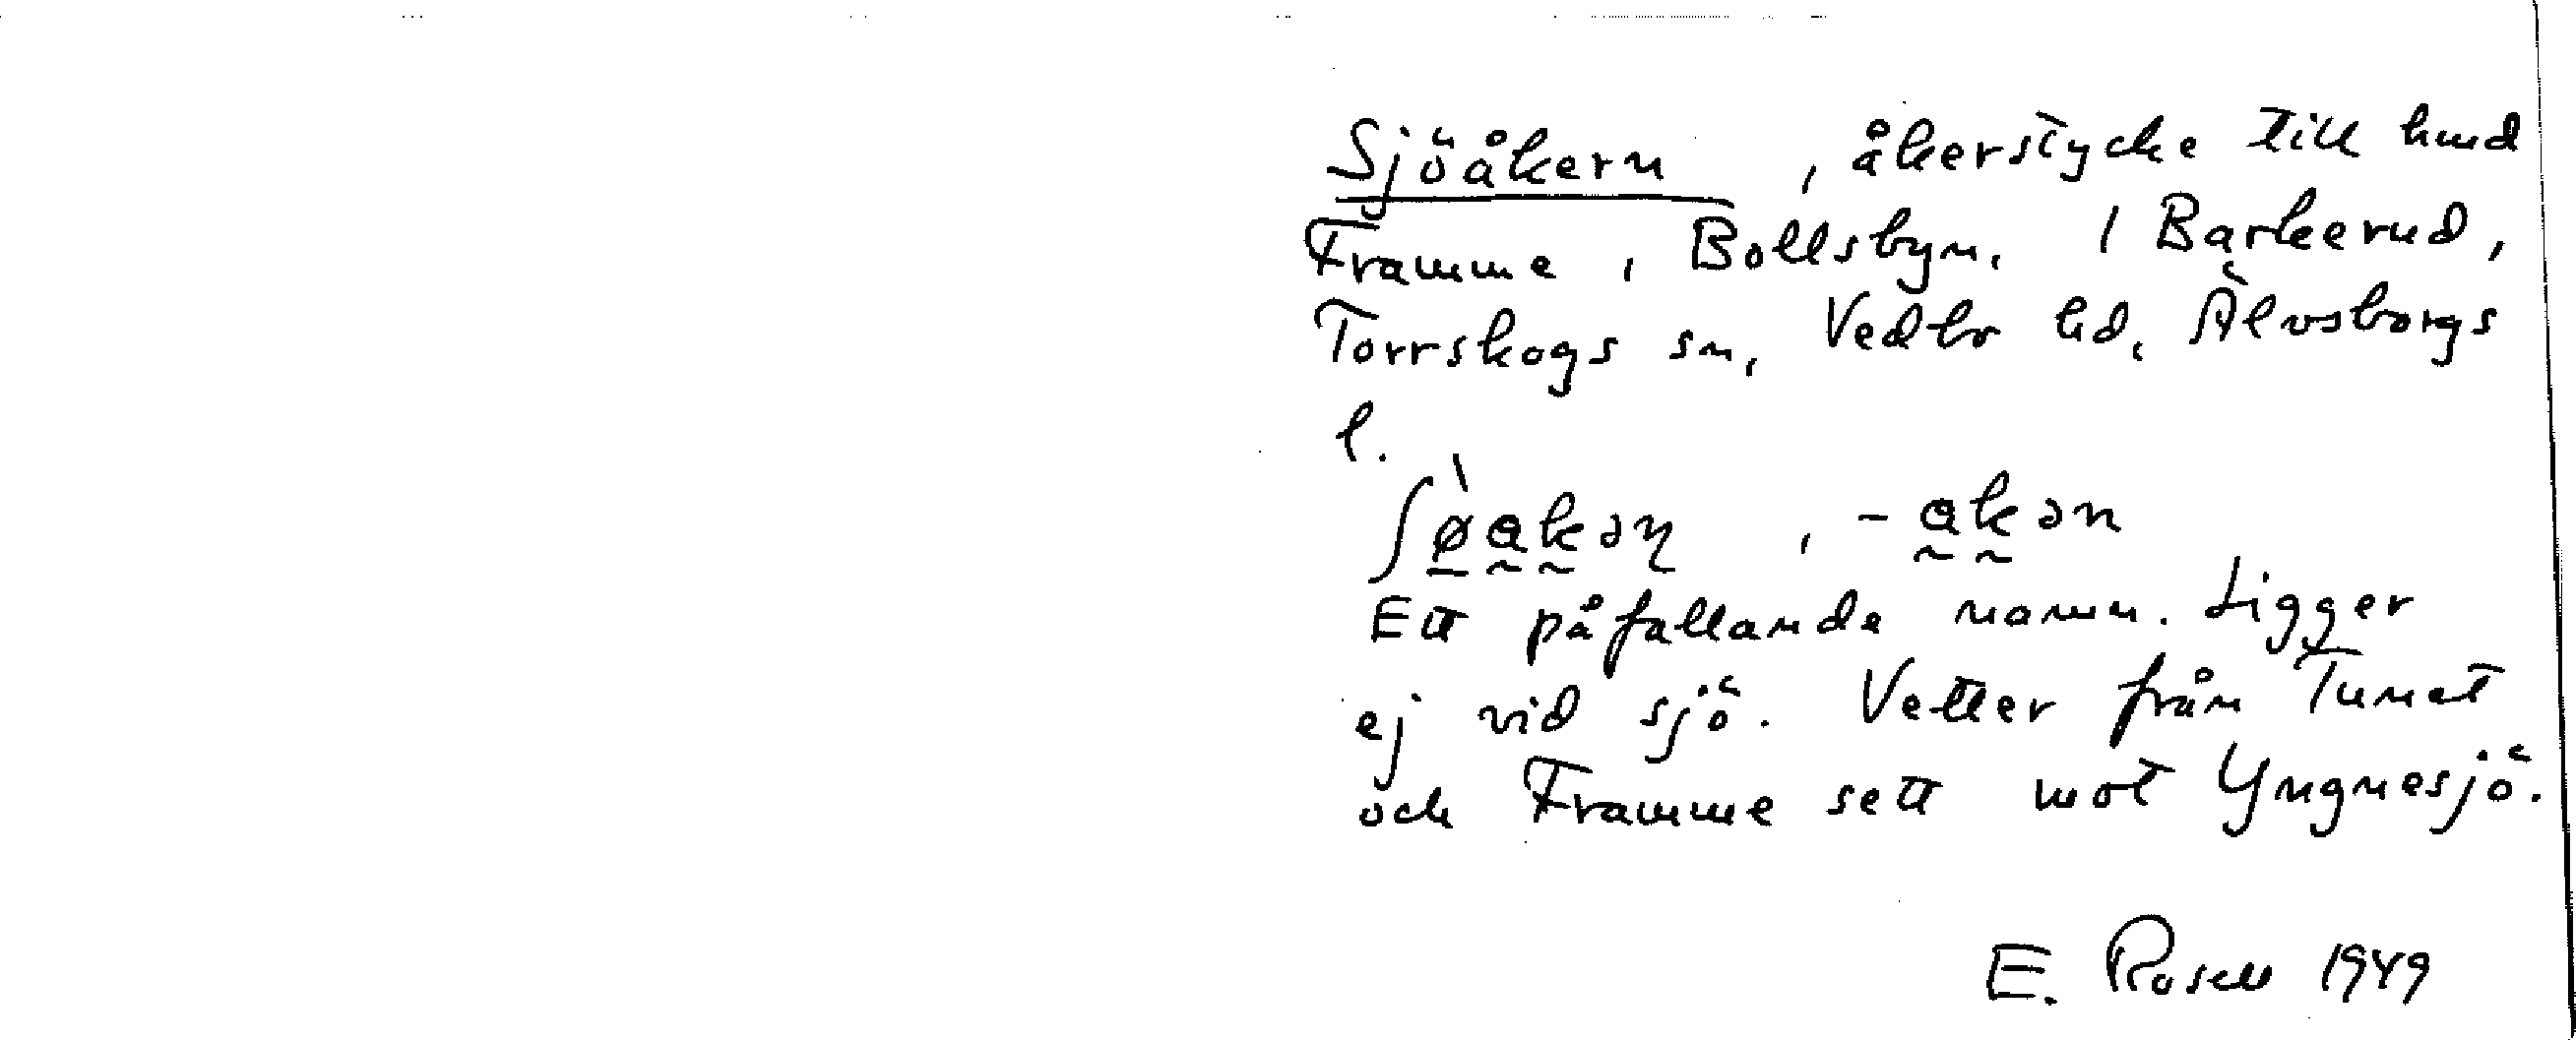 Sjöåkern , åkerstycke till hmd
Framme, Bollsbyn, 1 Barkerud,
Torrskogs sn, Vedbo hd, Älvsborgs
l.
ʃø̀akəɳ , -akən
Ett påfallande namn. Ligger
ej vid sjö. Vetter från Tunet
och Framme sett mot Yngnesjö.
E. Rosell 1949